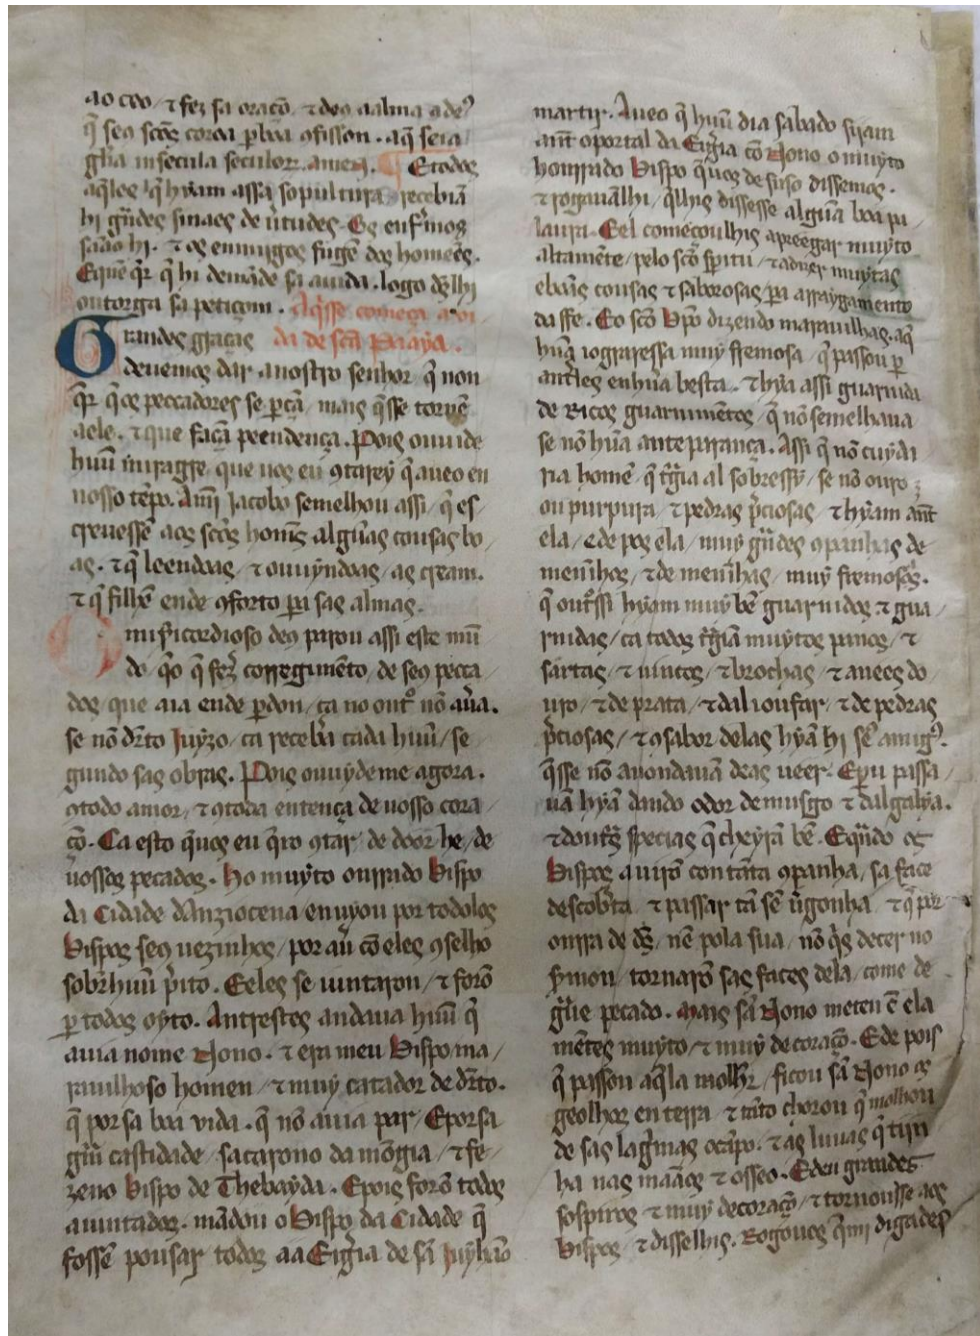 ao ceo / ⁊ fez sa oraçõ / ⁊ deu a alma a deꝰ
q̃ seu sc̃os coroa p̱ boa ꝯfisson . aq̃ seia
gl̃ia in sec̃ula seculor amen . ¶ E todos
aq̃les q̃ hyam assa sopultura recebiã
hi gñdes sinaes de ũtudes . Os enfr̃mos
sãão hi . ⁊ os enmigos fugẽ dos homẽes .
E quẽ q̃r q̃ hi demãde sa aiuda . logo d̃s lhi
outorga sa petiçom . Aq̃sse começa a vi
da de sc̃a Paaya .
Grandes graças
deuemos dar a nostro senhor q̃ non
q̃r q̃ os peccadores se p̱cã / mais q̃sse tornẽ
a ele . ⁊ que façã peendença . Pois ouuide
huũ miragre que uos eu ꝯtarey q̃ aueo en
nosso tẽpo . A mĩ Jacobo semelhou assi / q̃ es
creuesse aos sc̃os homẽs algũas cousas bo /
as . ⁊ q̃ leendoas / ⁊ ouuỹndoas / as cream .
⁊ q̃ filhẽ ende ꝯforto pera sas almas .
O mis̃icordioso deus parou assi este mũ
do q̃o q̃ fez̃ corregimẽto / de seus pecca
dos / que aia ende p̱don / ca no out̃o nõ au̾a .
se nõ dr̃to Juyzo / ca receb̃a cada huũ / se
gundo sas obras . Pois ouuydeme agora .
ꝯ todo amor / ⁊ ꝯ toda entença de uosso cora
çõ . Ca esto q̃uos eu q̃ro ꝯtar / de door he / de
uossos pecados . Ho muyto onrrado Bispo
da Cidade d'Anziocena enuyou por todolos
Bispos seus uezinhos / por au̾ cõ eles ꝯselho
sobr̃ huũ p̃ito . E eles se iuntaron / ⁊ forõ
p̱ todos oyto . Antrestes andaua huũ q̃
auia nome Nono . ⁊ era meu Bispo ma /
rauilhoso homen / ⁊ muy catador de dr̃to .
q̃ por sa boa vida . q̃ nõ auia par / E por sa
grã castidade / sacarono da mõgia / ⁊ fe /
zeno Bispo de Thebayda . E pois forõ todos
aiuntados . mãdou o Bispo da Cidade q̃
fossẽ pousar todos aa Eigr̃ia de sã Juyhão
martir . Aueo q̃ huũ dia sabado siyam
ant̃ o portal da Eigr̃ia cõ Nono o muyto
honrrado Bispo q̃uos de suso dissemos .
⁊ rogauãlhi / q̃lhis dissesse algũa boa pa
laura . E el começoulhis a preegar muyto
altamẽte / pelo sc̃o sp̃ritu / ⁊ a dizer muytas
e boas cousas ⁊ saborosas / pera arraygamento
da ffe . E o sc̃o B̃po dizendo marauilhas . aq̃
hũa iograressa muy fremosa / q̃ passou p̱
ant̃les en hũa besta . ⁊ hya assi guarnida
de Ricos guarnimẽtos / q̃ nõ semelhaua
se nõ hũa antepirança . Assi q̃ nõ cuyda
ria homẽ / q̃ tr̃gia al sobressy / se nõ ouro /
ou purpura / ⁊ pedras p̃ciosas / ⁊ hyam ant̃
ela / e de pos ela / muy grãdes ꝯpanhas de
menĩhos / ⁊ de menĩhas / muy fremosos .
q̃ out̃ssi hyam muy bẽ guarnidos ⁊ gua /
rnidas / ca todos tr̃giã muytos panos / ⁊
sartas / ⁊ uintos / ⁊ brochas / ⁊ anees do
uro / ⁊ de prata / ⁊ dalioufar / ⁊ de pedras
p̃ciosas / ⁊ ꝯ sabor delas hyã hi sẽ amigꝰ .
q̃sse nõ auondauã deas ueer . E p̱u passa /
uã hyã dando odor de musgo ⁊ dalgalya .
⁊ doutr̃s specias q̃ cheyrã bẽ . E quãdo os
Bispos a uirõ con tãta ꝯpanha / sa face
descob̃ta / ⁊ passar tã sẽ ũgonha / ⁊ q̃ por
onrra de d̃s / nẽ pola sua / nõ q̃s decer no
s̃mon / tornarõ sas faces dela / come de
grãue pecado . Mais sã Nono meteu ẽ ela
mẽtes muyto / ⁊ muy de coraçõ . E de pois
q̃ passou aq̃la molhr̃ / ficou sã Nono os
geolhos en terra / ⁊ tãto chorou q̃ molhou
de sas lag̃mas o cãpo . ⁊ as luuas q̃ tijn
ha nas mãaos ⁊ o sseo . E deu grandes
sospiros / ⁊ muy de coraçõ / ⁊ tornousse aos
Bispos / ⁊ disselhis . Rogouos q̃ mi digades